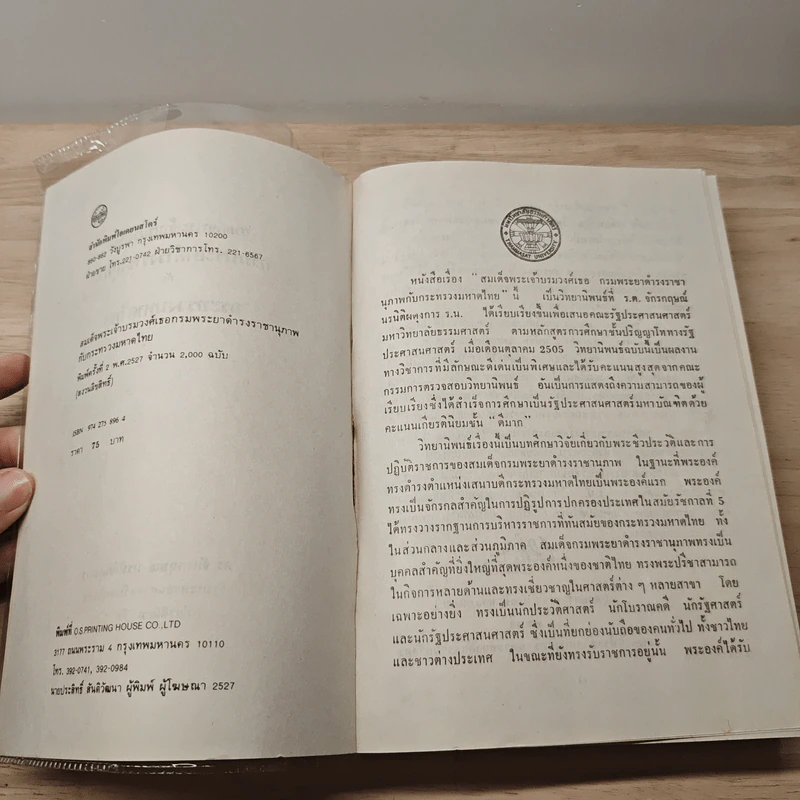 สำนักพิมพ์โอเดียนสโตร์
860-862 วังบูรพา กรุงเทพมหานคร 10200
ฝ่ายขาย โทร.221-0742 ฝ่ายวิชาการโทร. 221-6567
สมเด็จพระเจ้าบรมวงศ์เธอกรมพระยาดำรงราชานุภาพ
กับกระทรวงมหาดไทย
พิมพ์ครั้งที่ 2 พ.ศ.2527 จำนวน 2,000 ฉบับ
(สงวนลิขสิทธิ์)
ISBN 974 275 896 4
ราคา 75 บาท
พิมพ์ที่ O.S.PRINTING HOUSE CO.,LTD
3177 ถนนพระราม 4 กรุงเทพมหานคร 10110
โทร. 392-0741, 392-0984
นายประสิทธิ์ สันติวัฒนา ผู้พิมพ์ ผู้โฆษณา 2527
มหาวิทยาลัยธรรมศาสตร์
THAMMASAT UNIVERSITY
หนังสือเรื่อง "สมเด็จพระเจ้าบรมวงศ์เธอ กรมพระยาดำรงราชา
นุภาพกับกระทรวงมหาดไทย" นี้ เป็นวิทยานิพนธ์ที่ ร.ต. จักรกฤษณ์
นรนิติผดุงการ ร.น. ได้เรียบเรียงขึ้นเพื่อเสนอคณะรัฐประศาสนศาสตร์
มหาวิทยาลัยธรรมศาสตร์ ตามหลักสูตรการศึกษาชั้นปริญญาโททางรัฐ
ประศาสนศาสตร์ เมื่อเดือนตุลาคม 2505 วิทยานิพนธ์ฉบับนี้เป็นผลงาน
ทางวิชาการที่มีลักษณะดีเด่นเป็นพิเศษและได้รับคะแนนสูงสุดจากคณะ
กรรมการตรวจสอบวิทยานิพนธ์ อันเป็นการแสดงถึงความสามารถของผู้
เรียบเรียงซึ่งได้สำเร็จการศึกษาเป็นรัฐประศาสนศาสตร์มหาบัณฑิตด้วย
คะแนนเกียรตินิยมชั้น "ดีมาก"
วิทยานิพนธ์เรื่องนี้เป็นบทศึกษาวิจัยเกี่ยวกับพระชีวประวัติและการ
ปฏิบัติราชการของสมเด็จกรมพระยาดำรงราชานุภาพ ในฐานะที่พระองค์
ทรงดำรงตำแหน่งเสนาบดีกระทรวงมหาดไทยเป็นพระองค์แรก พระองค์
ทรงเป็นจักรกลสำคัญในการปฏิรูปการปกครองประเทศในสมัยรัชกาลที่ 5
ได้ทรงวางรากฐานการบริหารราชการที่ทันสมัยของกระทรวงมหาดไทย ทั้ง
ในส่วนกลางและส่วนภูมิภาค สมเด็จกรมพระยาดำรงราชานุภาพทรงเป็น
บุคคลสำคัญที่ยิ่งใหญ่ที่สุดพระองค์หนึ่งของชาติไทย ทรงพระปรีชาสามารถ
ในกิจการหลายด้านและทรงเชี่ยวชาญในศาสตร์ต่าง ๆ หลายสาขา โดย
เฉพาะอย่างยิ่ง ทรงเป็นนักประวัติศาสตร์ นักโบราณคดี นักรัฐศาสตร์
และนักรัฐประศาสนศาสตร์ ซึ่งเป็นที่ยกย่องนับถือของคนทั่วไป ทั้งชาวไทย
และชาวต่างประเทศ ในขณะที่ยังทรงรับราชการอยู่นั้น พระองค์ได้รับ